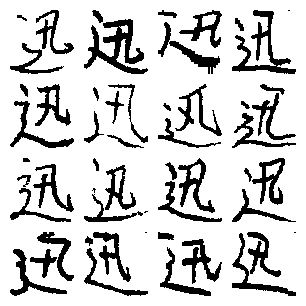 迅迅迅迅
迅迅迅迅
迅迅迅迅
迅迅迅迅